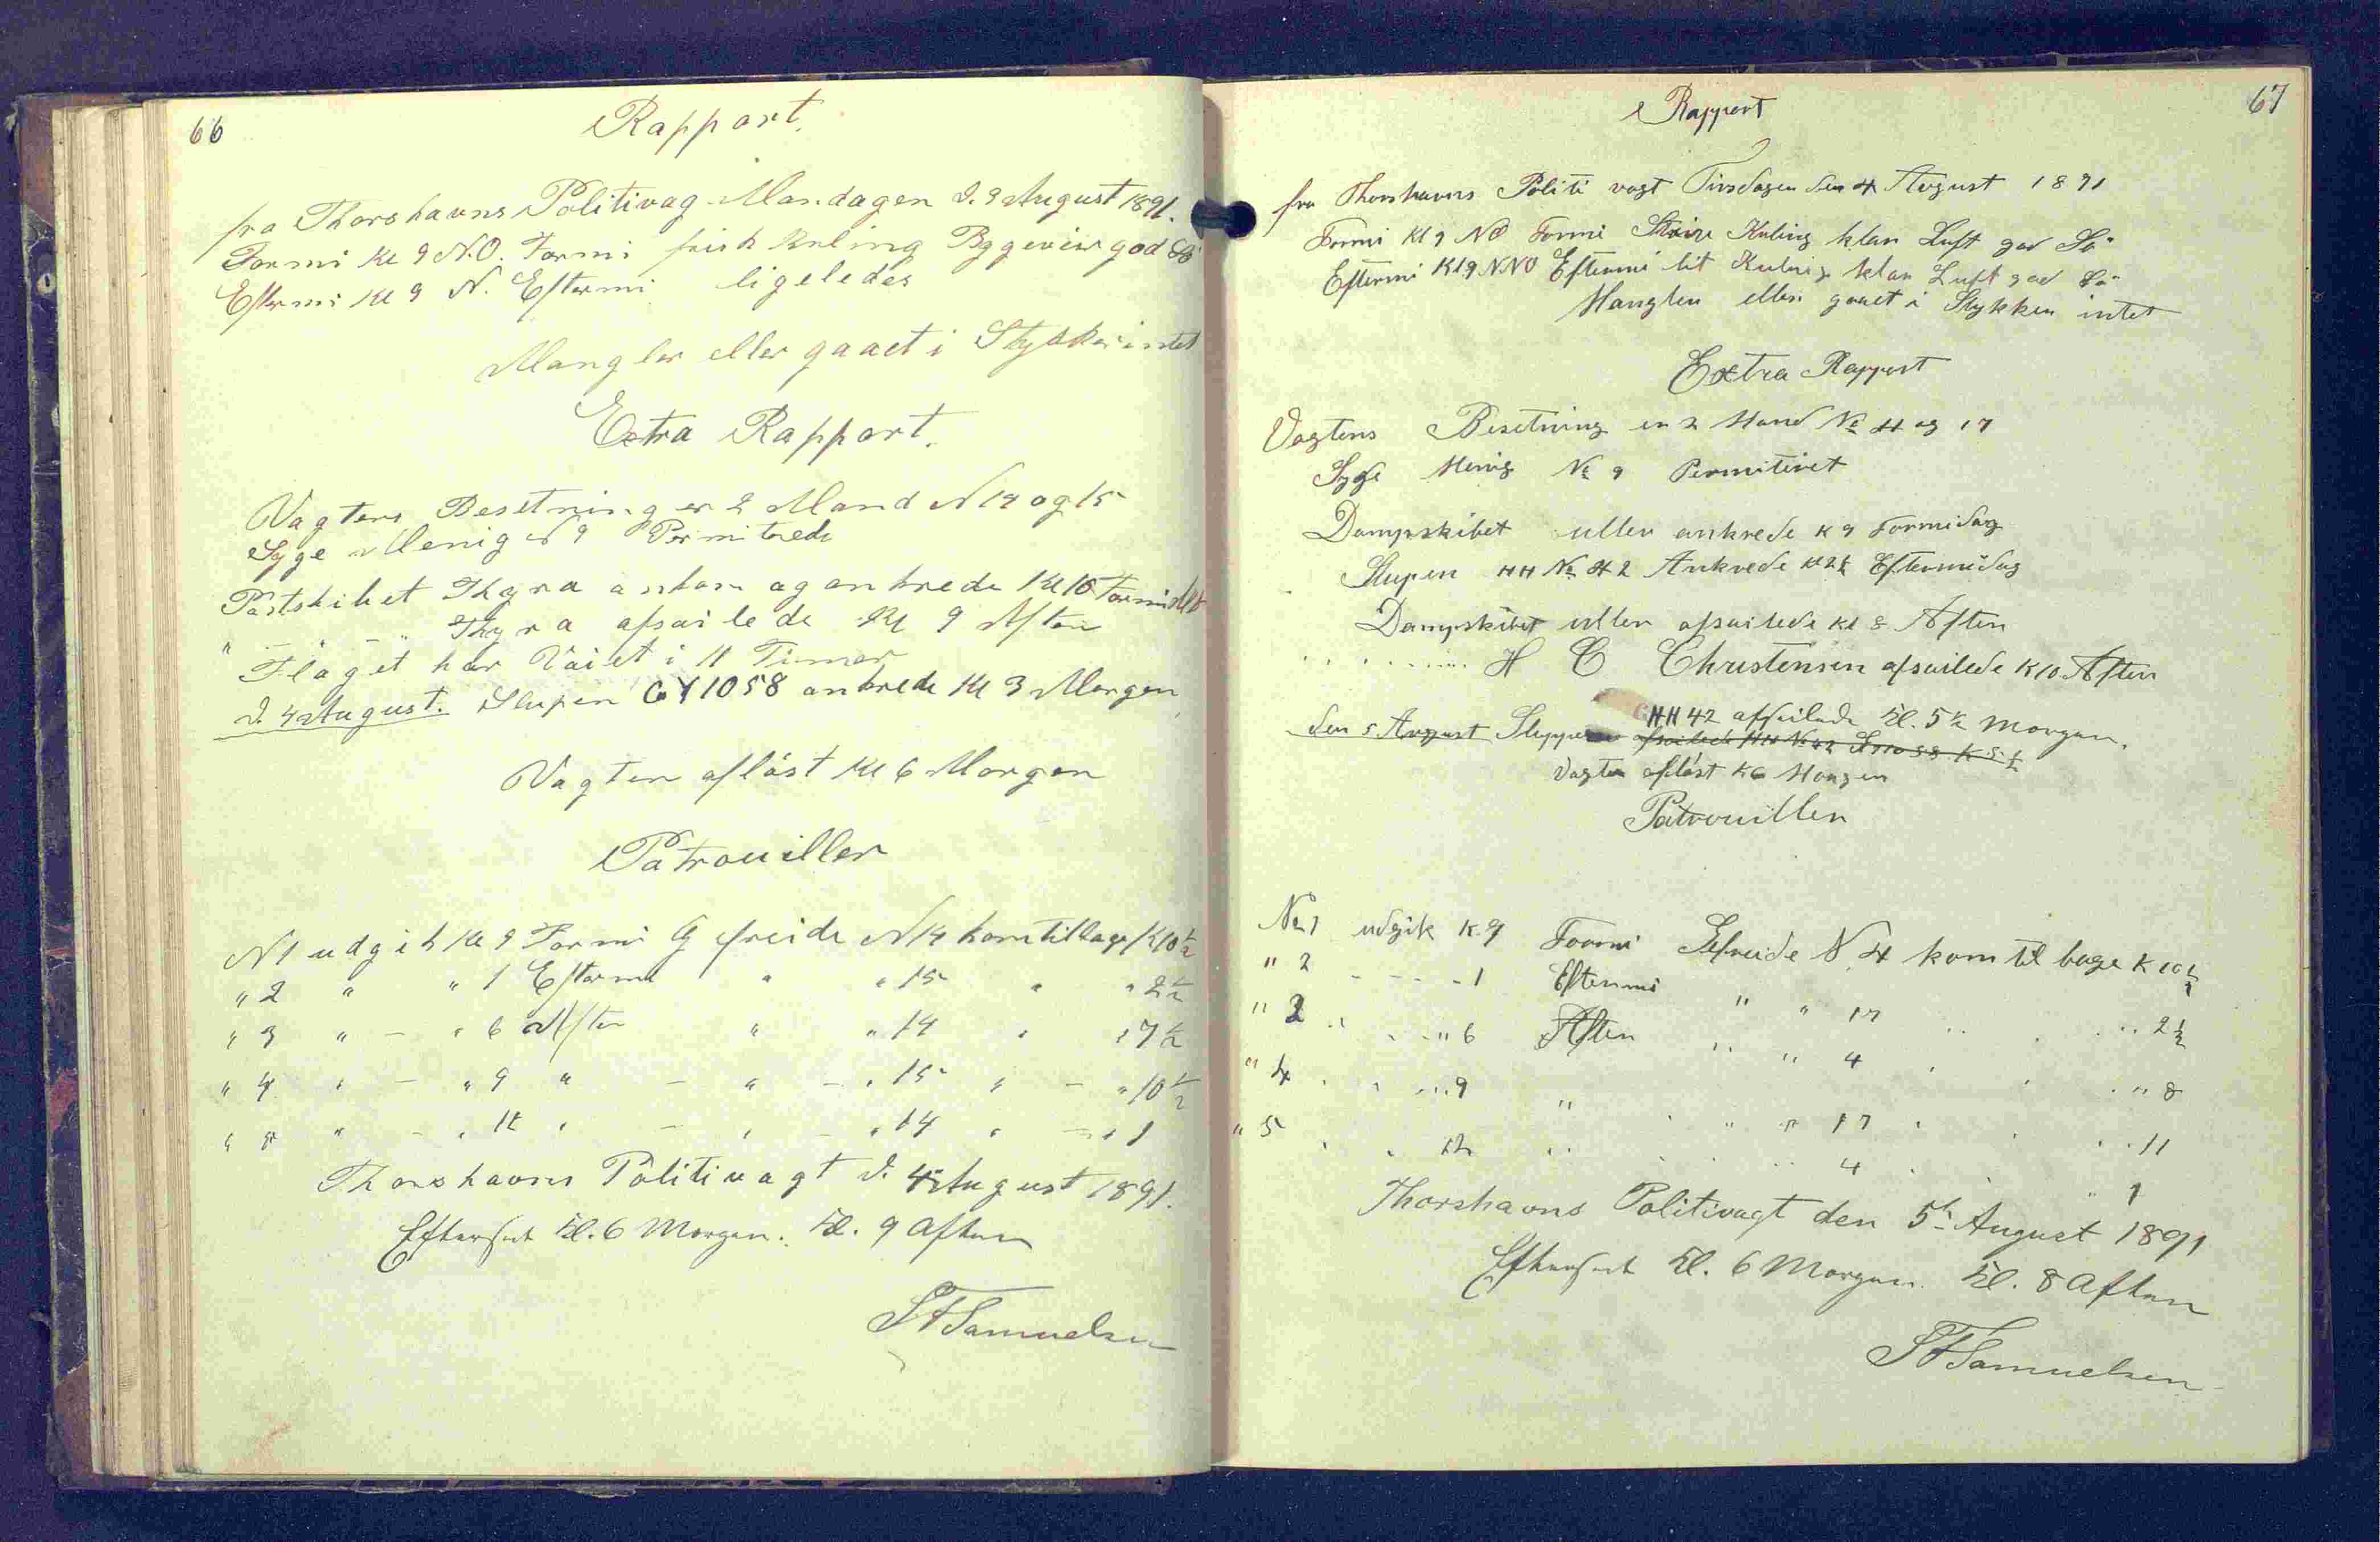 66
Rapport.
fra Thorshavns Politivag Mandagen d. 3 August 1891.
Formi Kl 9 N.O. Formi frisk Kuling Byggeveir god Sö
Eftermi Kl 9 N. Eftermi ligeledes
Mangler eller gaaet i Stykker intet
Extra Rapport.
Vagtens Besetning er 2 Mand N 14 og 15
Syge Menig N 9 Permiterede
Postskibet Thyra ankom og ankrede Kl 10 Formid
" - " - " Thyra afseilede Kl 9 Aften
Flaget har Vaiet i 11 Timer
d. 4 August. Slupen GY 1058 ankrede Kl 3 Morgen
Vagten aflöst Kl 6 Morgen
Patrouiller
N 1 udgik Kl 9 Formi Gefreide N 14 kom tilbage Kl 10 1/2
" 2 " " 1 Eftermi " " 15 " " 2 1/2
" 3 " - " 6 Aften " " 14 " " 7 1/2
" 4 " - " 9 " - " - " 15 " - " 10 1/2
" 5 " - " 12 " - " - " 14 " - " 1
Thorshavns Politivagt d. 4 August 1891.
Efterseet Kl. 6 Morgen. Kl. 9 Aften
SFSamuelsen
67
Rapport
fra Thorshavns Politi vagt Tirsdagen den 4 August 1891
Formi Kl 9 NO Formi Kuling klar Luft god Sö
Eftermi Kl 9 NNO Eftermi lit Kuling klar Luft god Sö
Mangler eller gaaet i Stykker intet
Extra Rapport
Vagtens Besetning er 2 Mand No 4 og 17
Syge Menig No 9 Permiteret
Dampskibet uller ankrede K 9 Formidag
Slupen HH No 42 Ankrede Kl 2 1/2 Eftermidag
Dampskibet uller afseilede Kl 8 Aften
" " " " H C Christensen afseilede K 10 Aften
den 5 August Sluppen HH 42 afseilede Kl. 5 1/2 Morgen.
afseilede HH No 42
Vagten aflöst K 6 Morgen
Patrouiller
No 1 udgik K 9 Formi Gefreide N 4 kom til bage K 10 1/2
" 2 - - - - 1 Eftermi " " 17 " " 2 1/2
" 3 " " " 6 Aften " " 4 " " 8
" 4 " " " 9 " " " 17 " " 11
" 5 " " 12 " " " 4 " " 1
Thorshavns Politivagt den 5te August 1891
Efterseet Kl. 6 Morgen. Kl. 8 Aften
SFSamuelsen